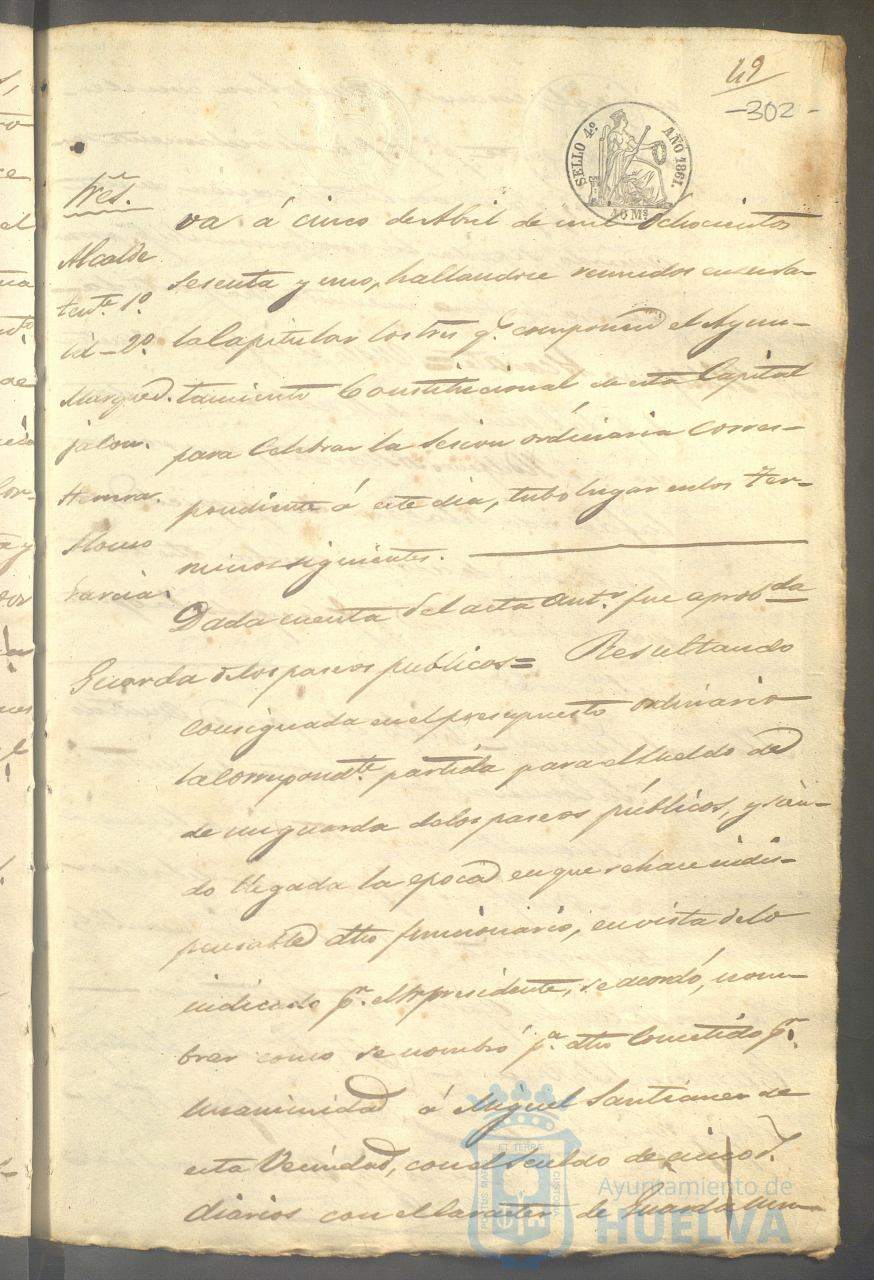 49
-302-
SELLO 4º AÑO 1861.
40 Ms
Sres.
Alcalde
tente. 1º
id - 2º
Marqued.
jalon.
Herrera.
Garcia.
va á cinco de Abril de mil Ochocientos
Sesenta y uno, hallandose reunidos en su Sa-
la Capitular los Sres q. componen el Ayun-
tamiento Constitucional de esta Capital
para Celebrar la Sesion ordinaria Corres-
pondiente á este dia, tubo lugar en los Ter-
minos siguientes.
Dada cuenta del acta antr. fue aprobda
Guarda de los paseos publicos = Resultando
consignada en el presupuesto ordinario
la correspondte. partida para el sueldo de
un guarda de los paseos públicos, y sien-
do llegada la epoca en que se hace indis-
pensable dho funcionario, en vista de lo
indicado pr. el Sr presidente, se acordó, nom-
brar como se nombró pa. dho Cometido pr.
unanimidad á Miguel Santianes de
esta Vecindad, con el Sueldo de cinco r.
diarios con el Caracter de Guarda Mu-
PORTUS MARIS ET TERRAE CUSTODIA
Ayuntamiento de
HUELVA